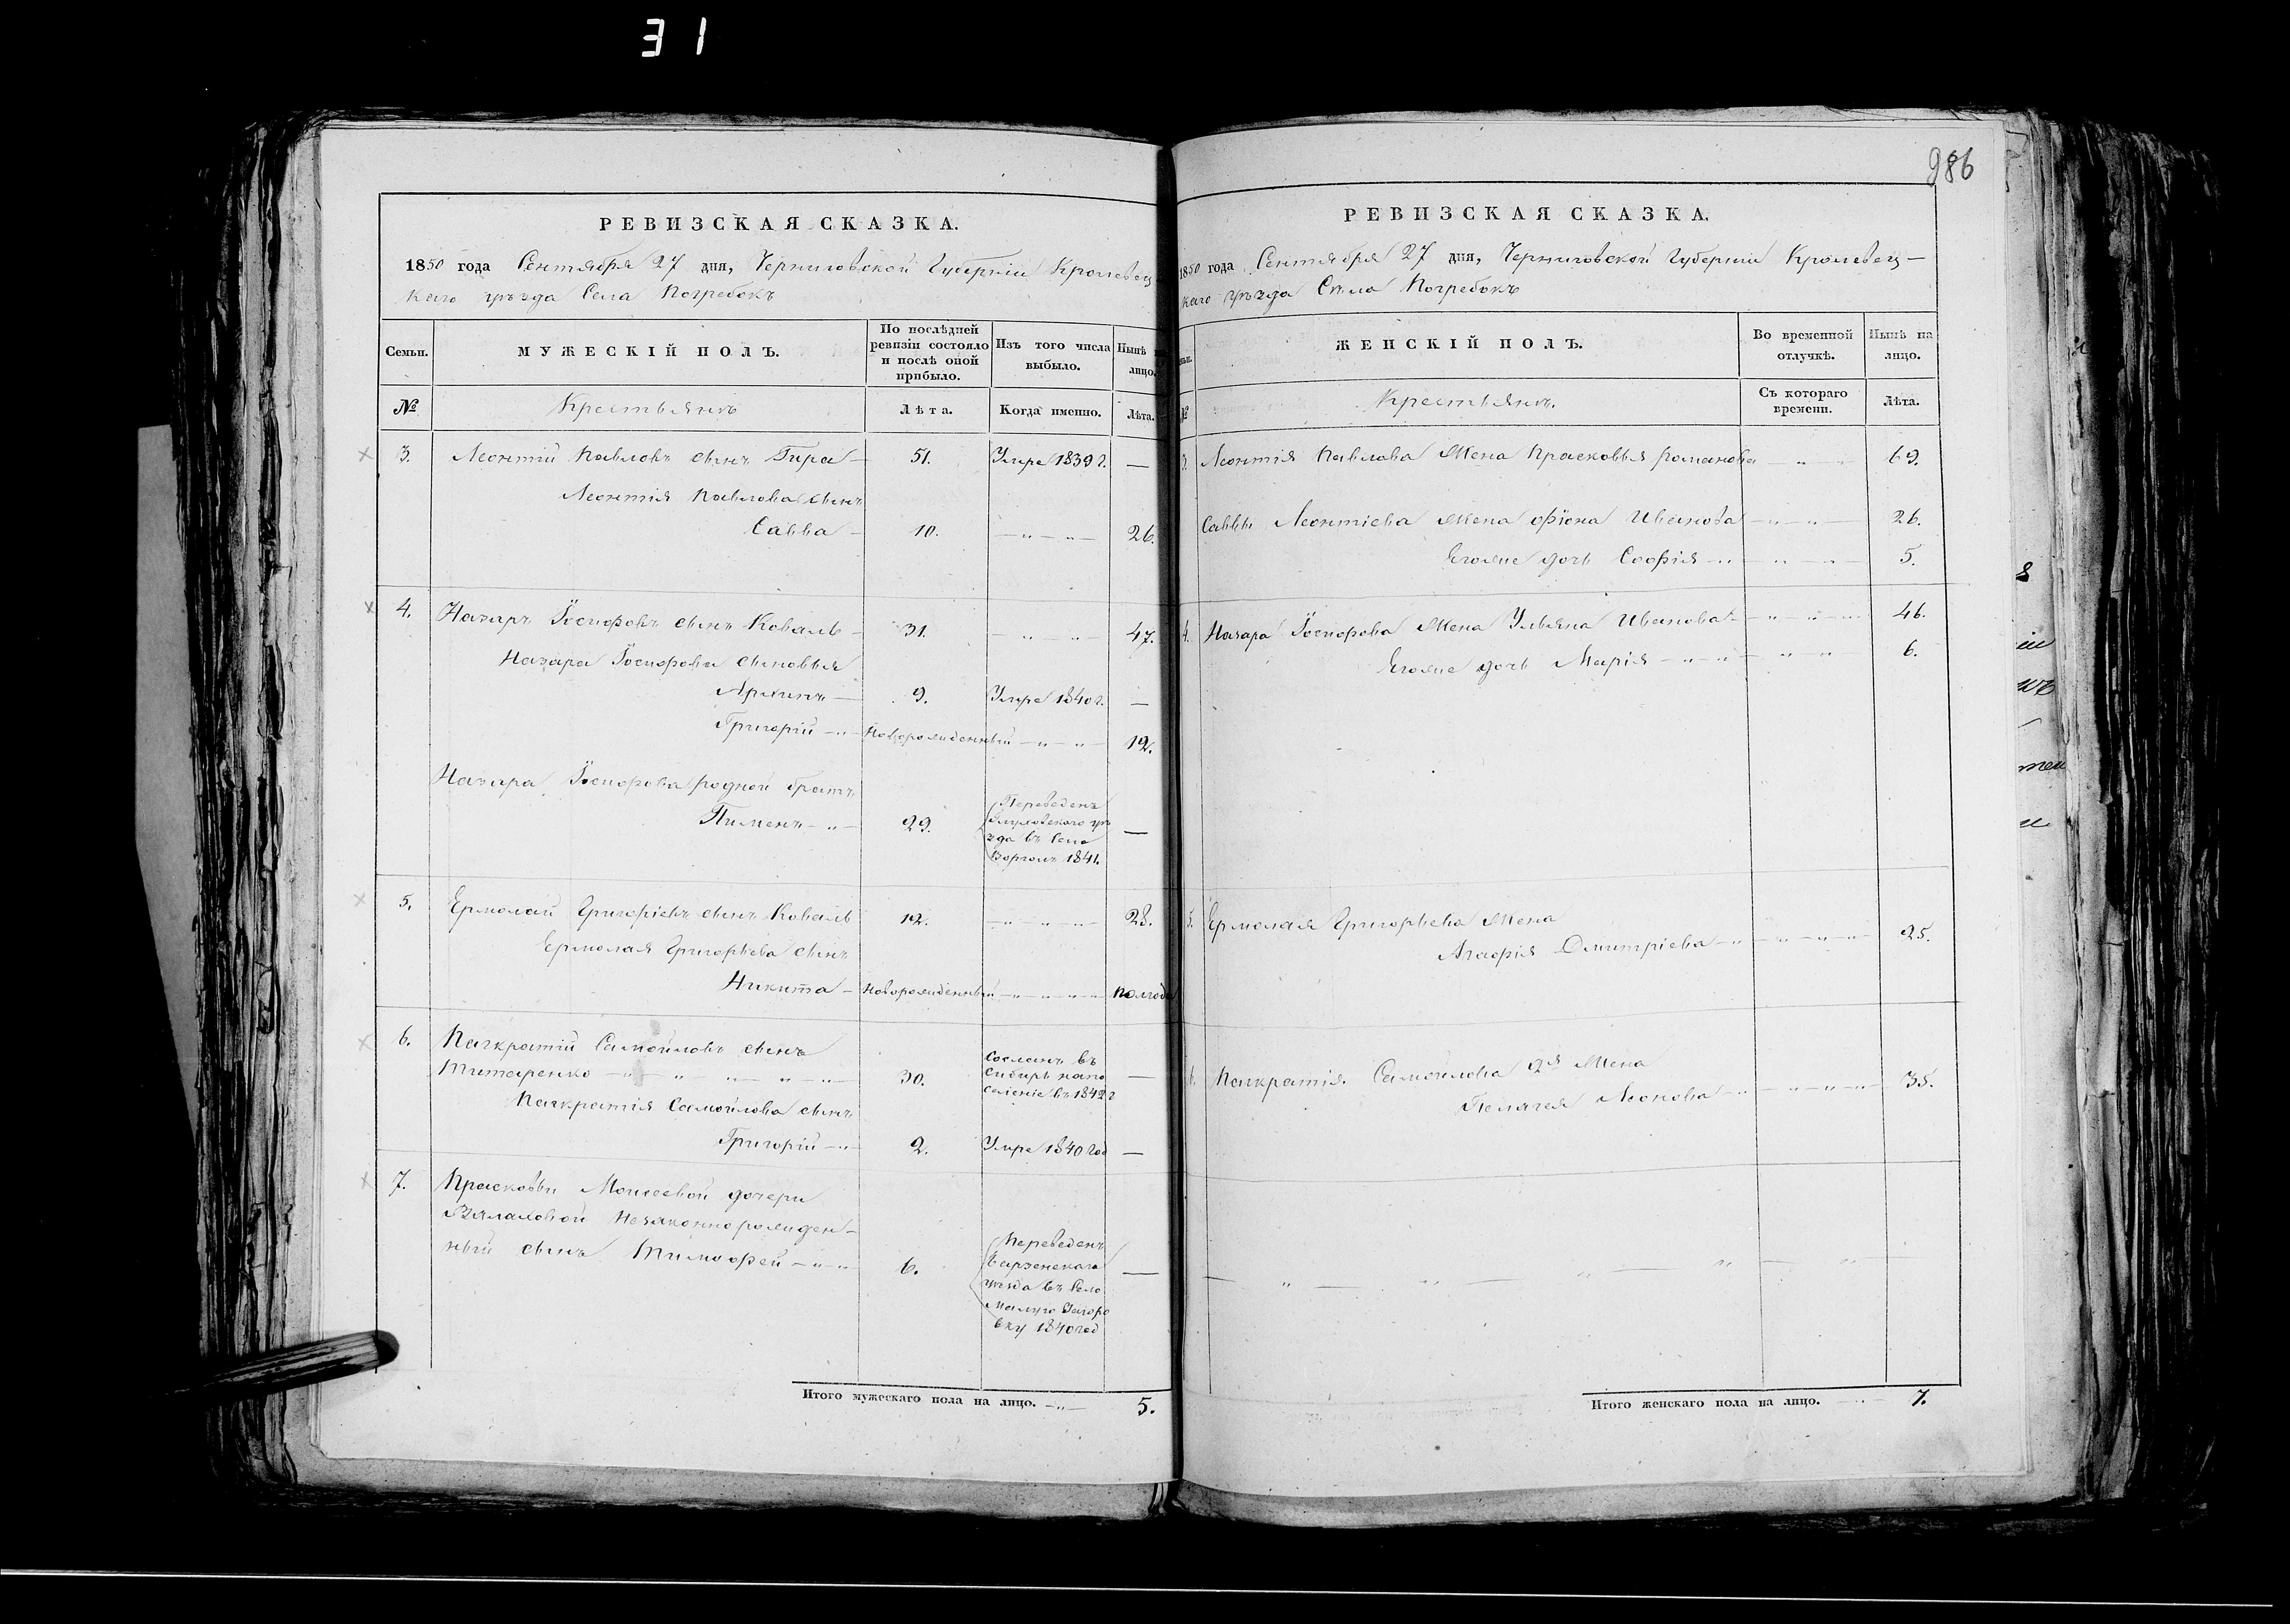 31
986
РЕВИЗСКАЯ СКАЗКА.
1850 года Сентября 27 дня, Черниговской Губерніи Кролевец
каго уѣзда Села Погребокъ
Семьи.
МУЖЕСКІЙ ПОЛЪ.
По послѣдней
ревизіи состояло
и послѣ оной
прибыло.
Изъ того числа
выбыло.
Нынѣ на
лицо.
№
Крестьянъ
Лѣта.
Когда именно.
Лѣта.
3. Леонтій Павловъ сынъ Гира — 51. Умре 1839 г. —
Леонтія Павлова сынъ
Савва — 10. — " — " — 26.
4. Назаръ Іосифовъ сынъ Коваль — 31. — " — " — 47.
Назара Іосифова сыновья
Архипъ — 9. Умре 1840 г. —
Григорій — " — Новорожденный — " — " — 12.
Назара Іосифова родной братъ
Пименъ — " — 29. Переведенъ —
Глуховского уѣ
зда въ Село
Воргол 1841.
5. Ермолай Григоріевъ сынъ Коваль 12. — " — " — 28.
Ермолая Григорьева сынъ
Никита — Новорожденный — " — " — полгода
6. Панкратій Самойловъ сынъ
Титаренко — " — " — " — " — 30. Сосланъ въ —
Сибирь на по
селеніе въ 1842 г
Панкратія Самойлова сынъ
Григорій — " — 2. Умре 1840 год —
7. Прасковьи Моисеевой дочери
незаконнорожден-
ный сынъ Тимофей — " — " 6. Переведенъ —
Борзенскаго
уѣзда въ Село
Малую Загоро
вку 1840 год
Итого мужескаго пола на лицо. — " — 5.
РЕВИЗСКАЯ СКАЗКА.
1850 года Сентября 27 дня, Черниговской Губерніи Кролевец—
каго уѣзда Села Погребокъ
ЖЕНСКІЙ ПОЛЪ.
Во временной
отлучкѣ.
Нынѣ на
лицо.
№
Крестьянъ.
Съ котораго
времени.
Лѣта.
3. Леонтія Павлова Жена Прасковья Романова — " — 69.
Саввы Леонтіева Жена Фіона Иванова — " — " — 26.
Егоже дочь Софія — " — " — " — 5.
4. Назара Іосифова Жена Ульяна Иванова — " — " — 46.
Егоже дочь Марія — " — " — " — " 6.
5. Ермолая Григорьева Жена
Агафія Дмитріева — " — " — " — " — 25.
6. Панкратія Самойлова 2я Жена
Пелагея Леонова — " — " — " — " — 35.
— " — " — " — " — " —
Итого женскаго пола на лицо. — " — 7.